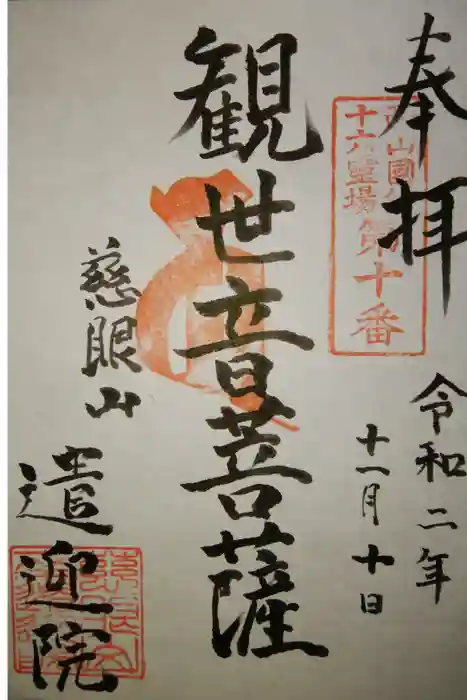 奉拝
十六霊場
第十番
令和二年
十一月十日
観世音菩薩
慈眼山
遣迎院